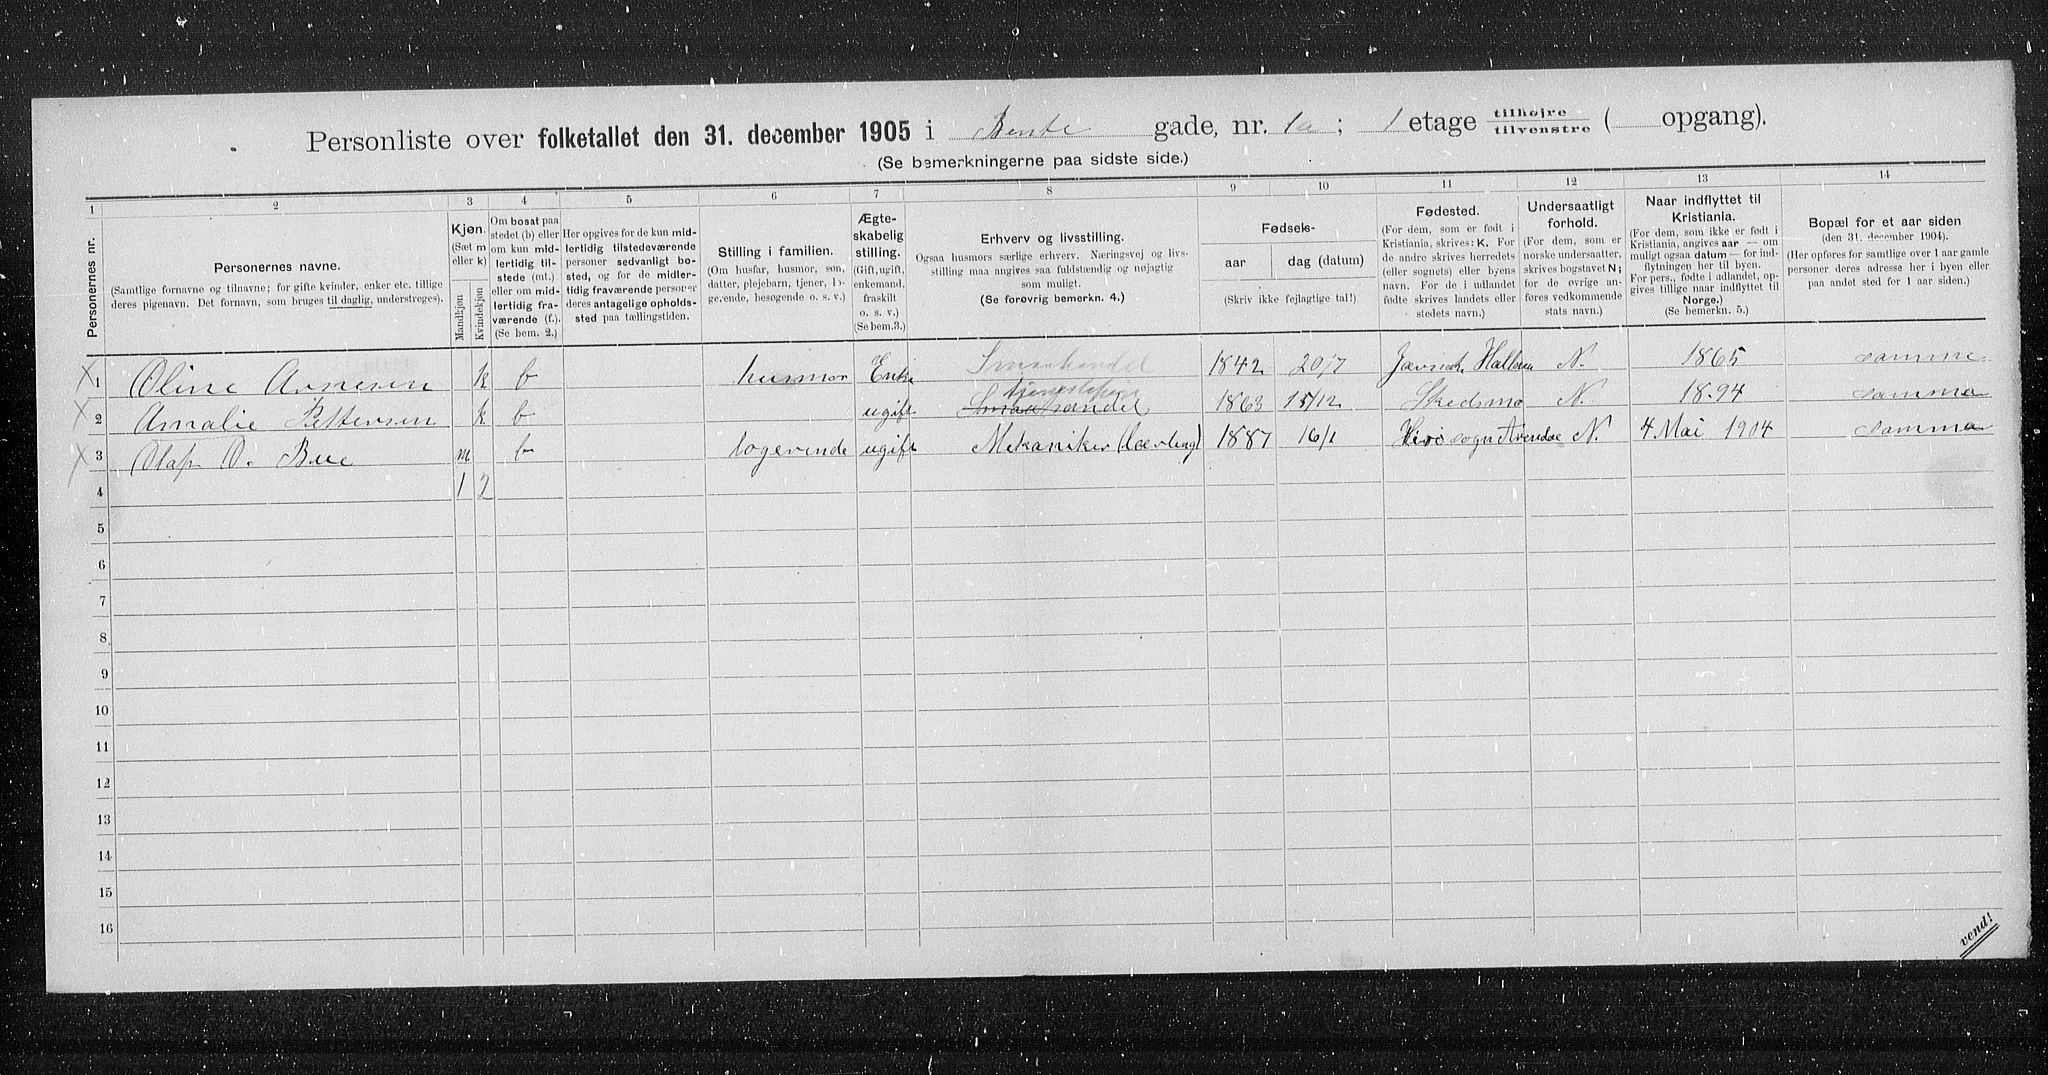 Personliste over folketallet den 31. december 1905 i Bente gade, nr. 1a ; 1 etage tilhøjre tilvenstre ( opgang).
(Se bemerkningerne paa sidste side.)
1 2 3 4 5 6 7 8 9 10 11 12 13 14
Personernes nr.
Personernes navne.
(Samtlige fornavne og tilnavne; for gifte kvinder, enker etc. tillige deres pigenavn. Det fornavn, som bruges til daglig, understreges).
Kjøn.
(Sæt m eller k)
Mandkjøn
Kvindekjøn
Om bosat paa stedet (b) eller om kun midlertidig tilstede (mt.) eller om midlertidig fraværende (f.). (Se bem. 2.)
Her opgives for de kun midlertidig tilstedeværende personer sedvanlig bosted, og for de midlertidig fraværende personer deres antagelige opholdssted paa tællingstiden.
Stilling i familien.
(Om husfar, husmor, søn, datter, plejebarn, tjener, logerende, besøgende o. s. v.)
Ægteskabelig stilling.
(Gift, ugift, enkemand, fraskilt o. s. v.)
(Se bem.3.)
Erhverv og livsstilling.
Ogsaa husmors særlige erhverv. Næringsvej og livsstilling maa angives saa fuldstændig og nøjagtig som muligt.
(Se forøvrig bemerkn. 4.)
Fødsels-
aar
dag (datum)
(Skriv ikke fejlagtige tal!)
Fødested.
(For dem, som er født i Kristiania, skrives: K. For de andre skrives herredets (eller sognets) eller byens navn. For de i udlandet fødte skrives landets eller stedets navn.)
Undersaatligt forhold.
(For dem, som er norske undersaatter, skrives bogstavet N; for de øvrige anføres vedkommende stats navn.)
Naar indflyttet til Kristiania.
(For dem, som ikke er født i Kristiania, angives aar — om muligt ogsaa datum — for indflytningen her til byen. For pers., fødte i adlandet, opgives tillige naar indflyttet til Norge.)
(Se bemerkn. 5.)
Bopæl for et aar siden
(den 31. december 1904).
(Her opføres for samtlige over 1 aar gamle personer deres adresse her i byen eller paa andet sted for 1 aar siden.)
1 Oline Arnesen k b husmor Enke Smaahandel 1842 20/7 Hallann N. 1865 samme
2 Amalie Pettersen k b ugift Smaahandel 1863 15/12 Skedsmo N. 1894 samme
3 Olaf O. Bue m b logerende ugift Mekaniker (Lærling) 1887 16/1 sogn N. 4 Mai 1904 samme
4 1 2
5
6
7
8
9
10
11
12
13
14
15
16
vend!